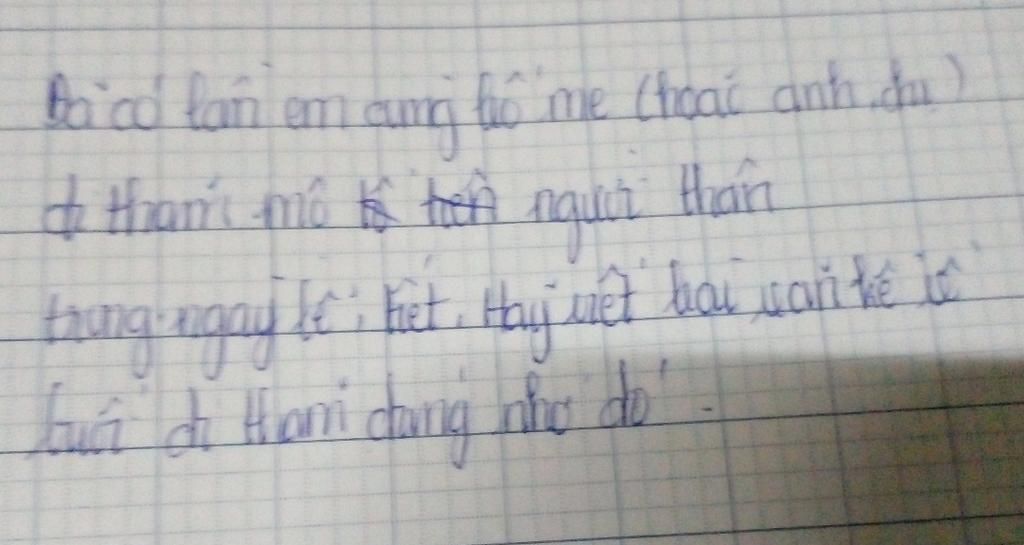 Đã có lần em cùng bố mẹ (hoặc anh, chị)
đi thăm mộ người thân
trong ngày lễ, tết. Hãy viết bài văn kể về
buổi đi thăm đáng nhớ đó.